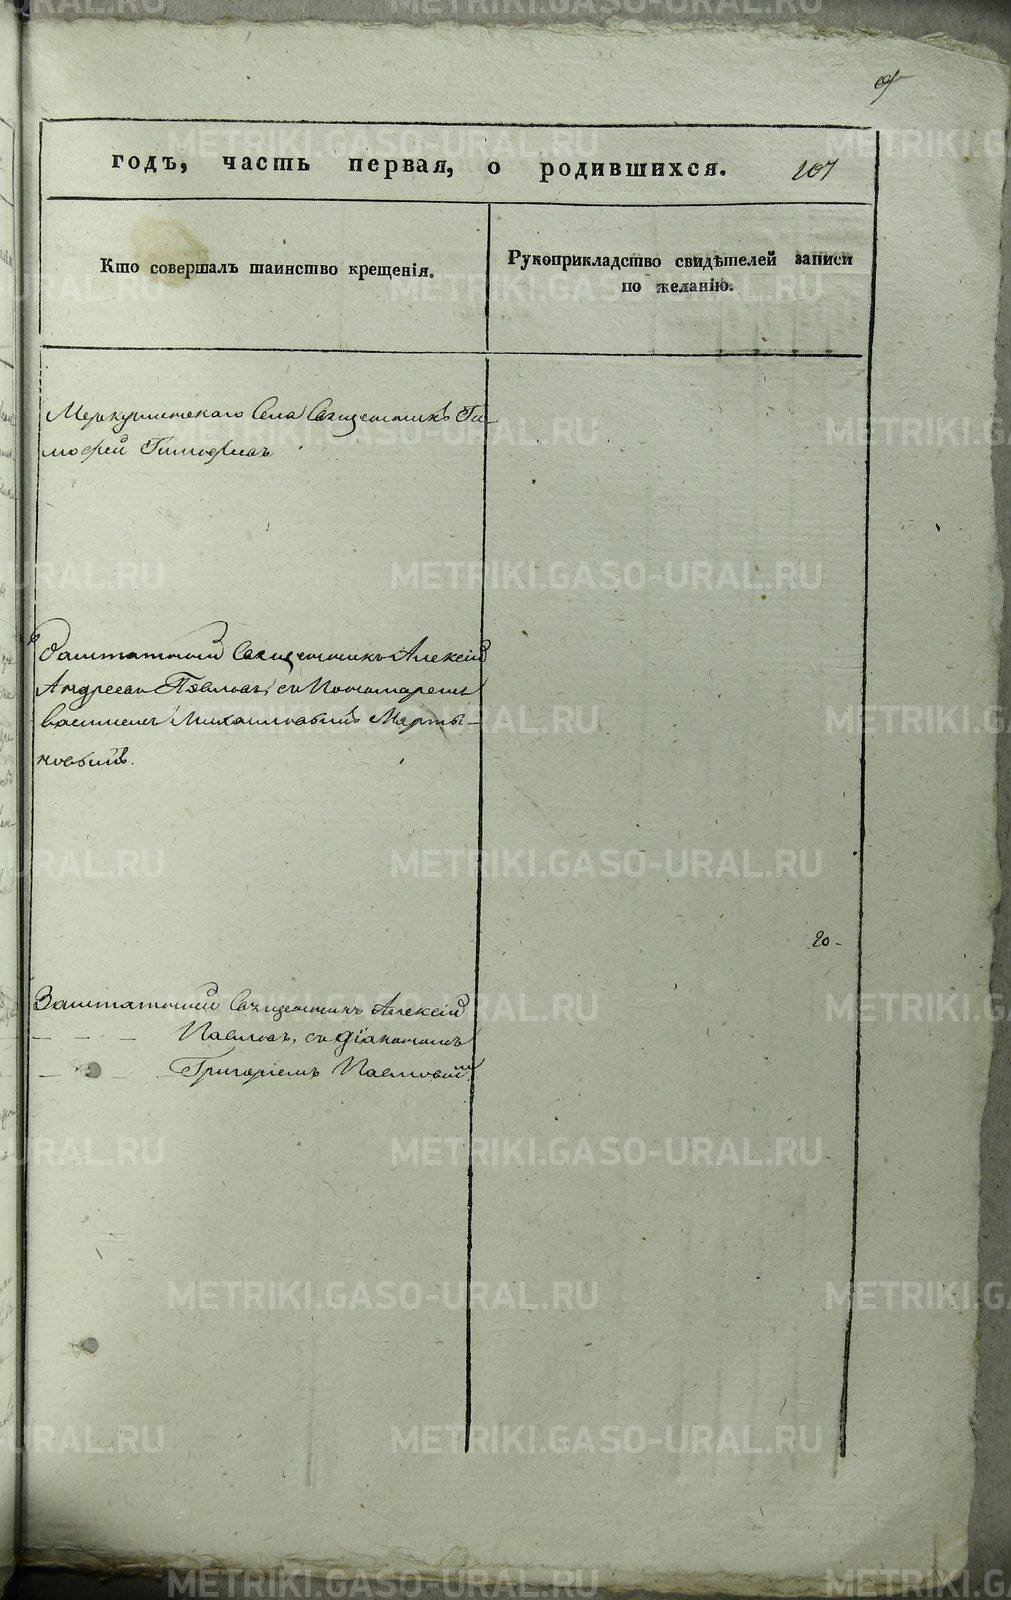 годъ, часть первая, о родившихся. 107
Кто совершалъ таинство крещенія.
Рукоприкладство свидѣтелей записи
по желанію.
Меркушинскаго Села Священникъ Ти-
мофей Тимофеевъ
Заштатный Священникъ Алексій
Андреевъ Павловъ, съ Пономаремъ
Василіемъ Михайловымъ Марты-
новымъ.
20-
Заштатный Священникъ Алексій
- - Павловъ, съ Діакономъ
- - - Григоріемъ Павловымъ
METRIKI.GASO-URAL.RU